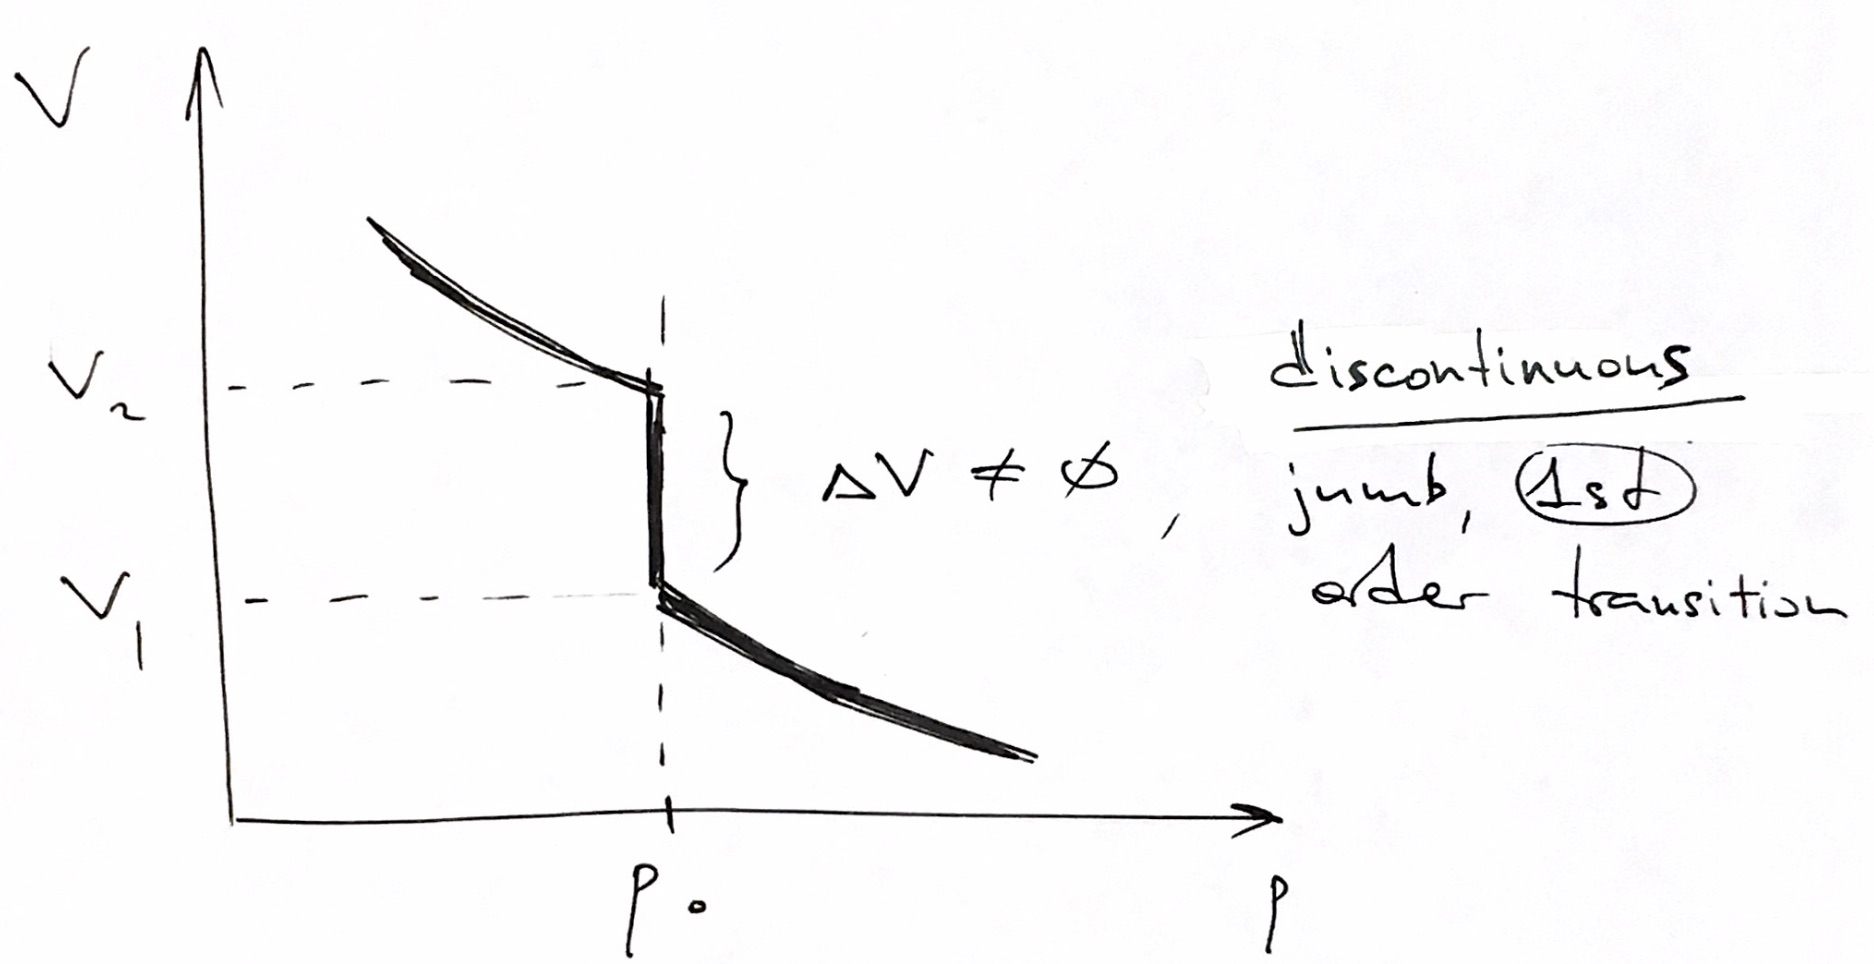 V
V₂
ΔV ≠ ∅ ,
discontinuous
jumb, 1st
order transition
V₁
P₀
P